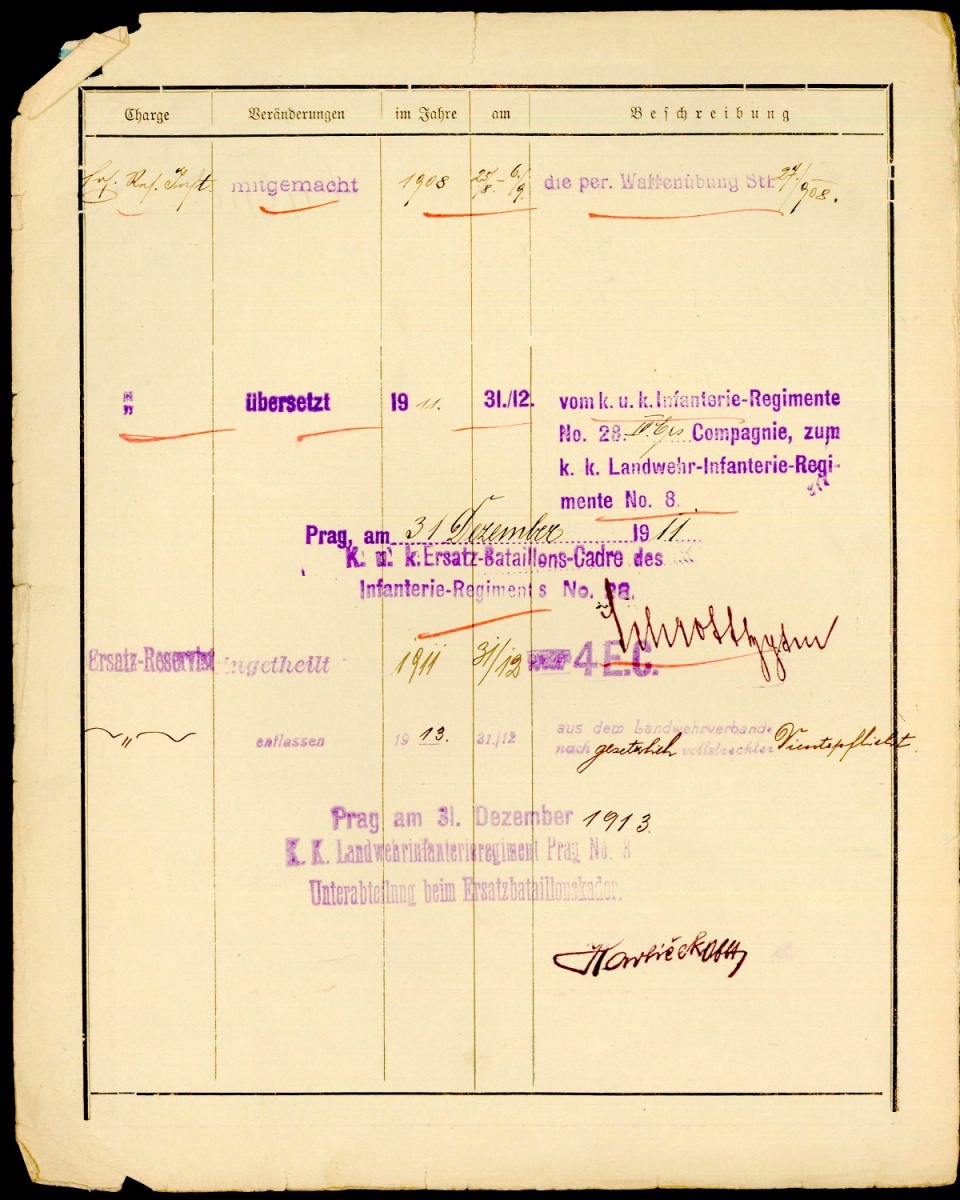 Charge Veränderungen im Jahre am Beschreibung
mitgemacht 1908 25/8.–6./9. die per. Waffenübung 908.
„ übersetzt 19 11. 31./12. vom k. u. k. Infanterie-Regimente
No. 28. Compagnie, zum
k. k. Landwehr-Infanterie-Regi-
mente No. 8.
Prag, am 31 Dezember 19 11
K. u. k. Ersatz-Bataillons-Cadre des
Infanterie-Regiments No. 28.
Ersatz-Reservist ingetheilt 1911 31/12 4 E.C.
„ entlassen 19 13. 31./12 aus dem Landwehrverbande
nach gesetzlich vollstreckter Dienstpflicht.
Prag am 31. Dezember 1913.
K. K. Landwehrinfanterieregiment Prag No. 8
Unterabteilung beim Ersatzbataillonskader.
Havlíček